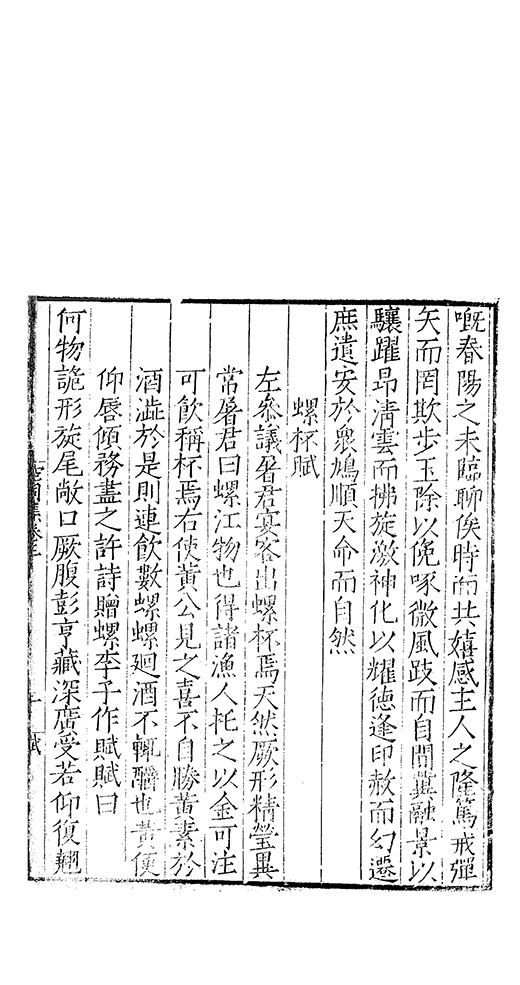 嘅春陽之未臨聊俟時而共嬉感主人之隆篤戒彈
矢而罔欺步玉除以俛啄微風跂而自閒冀融景以
驤躍昂清雲而拂旋激神化以耀德逢印赦而幻遷
庶遺安於衆鳩順天命而自然
螺杯賦
左叅議暑君宴客出螺杯焉天然厥形精瑩異
常暑君曰螺江物也得諸漁人托之以金可注
可飲稱杯焉右使黃公見之喜不自勝黃素於
酒澁於是則連飲數螺螺廻酒不輒釂也黃使
仰唇傾務盡之許詩贈螺李子作賦賦曰
何物詭形旋尾敞口厥腹彭亨藏深廣受若仰復翹
賦